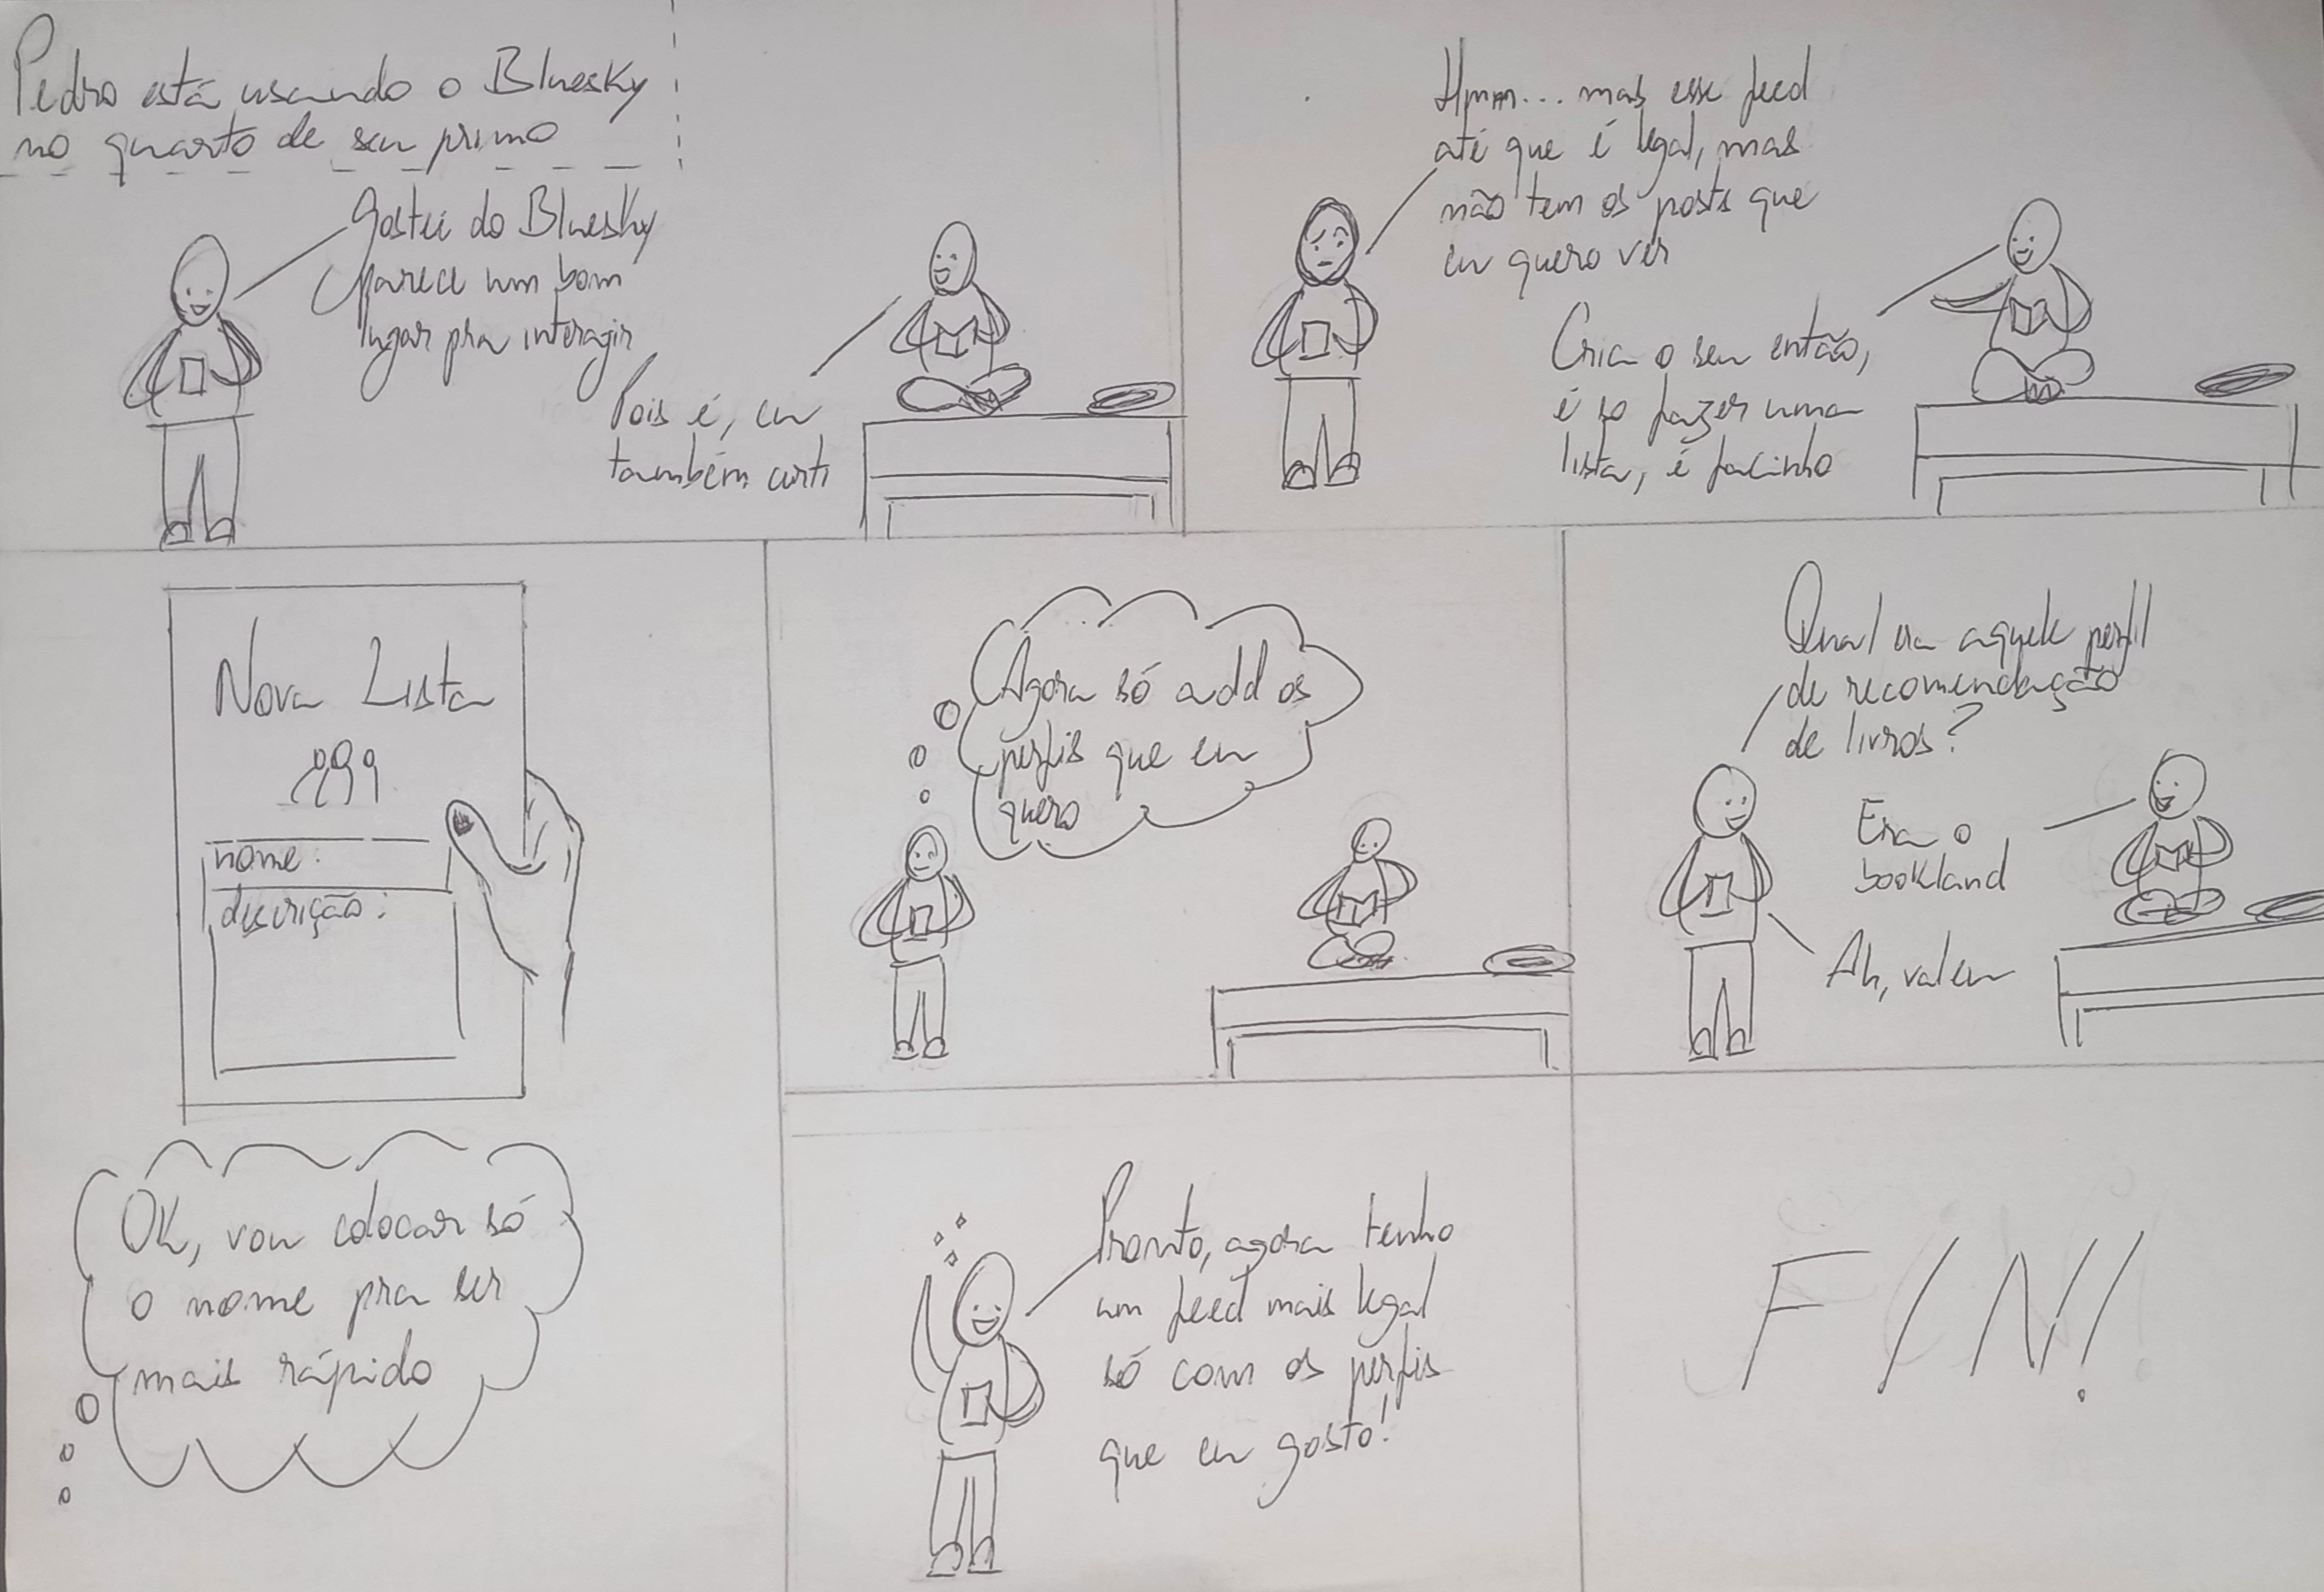 Pedro está usando o Bluesky
no quarto de seu primo
Gostei do Bluesky
parece um bom
lugar pra interagir
Pois é, eu
também curti
Hmm... mas esse feed
até que é legal, mas
não tem os posts que
eu quero ver
Cria o seu então,
é so fazer uma
lista, é facinho
Nova Lista
nome:
descrição:
OK, vou colocar só
o nome pra ser
mais rápido
Agora só add os
perfis que eu
quero
Qual era aquele perfil
de recomendação
de livros?
Era o
bookland
Ah, valeu
Pronto, agora tenho
um feed mais legal
só com os perfis
que eu gosto!
FIN!